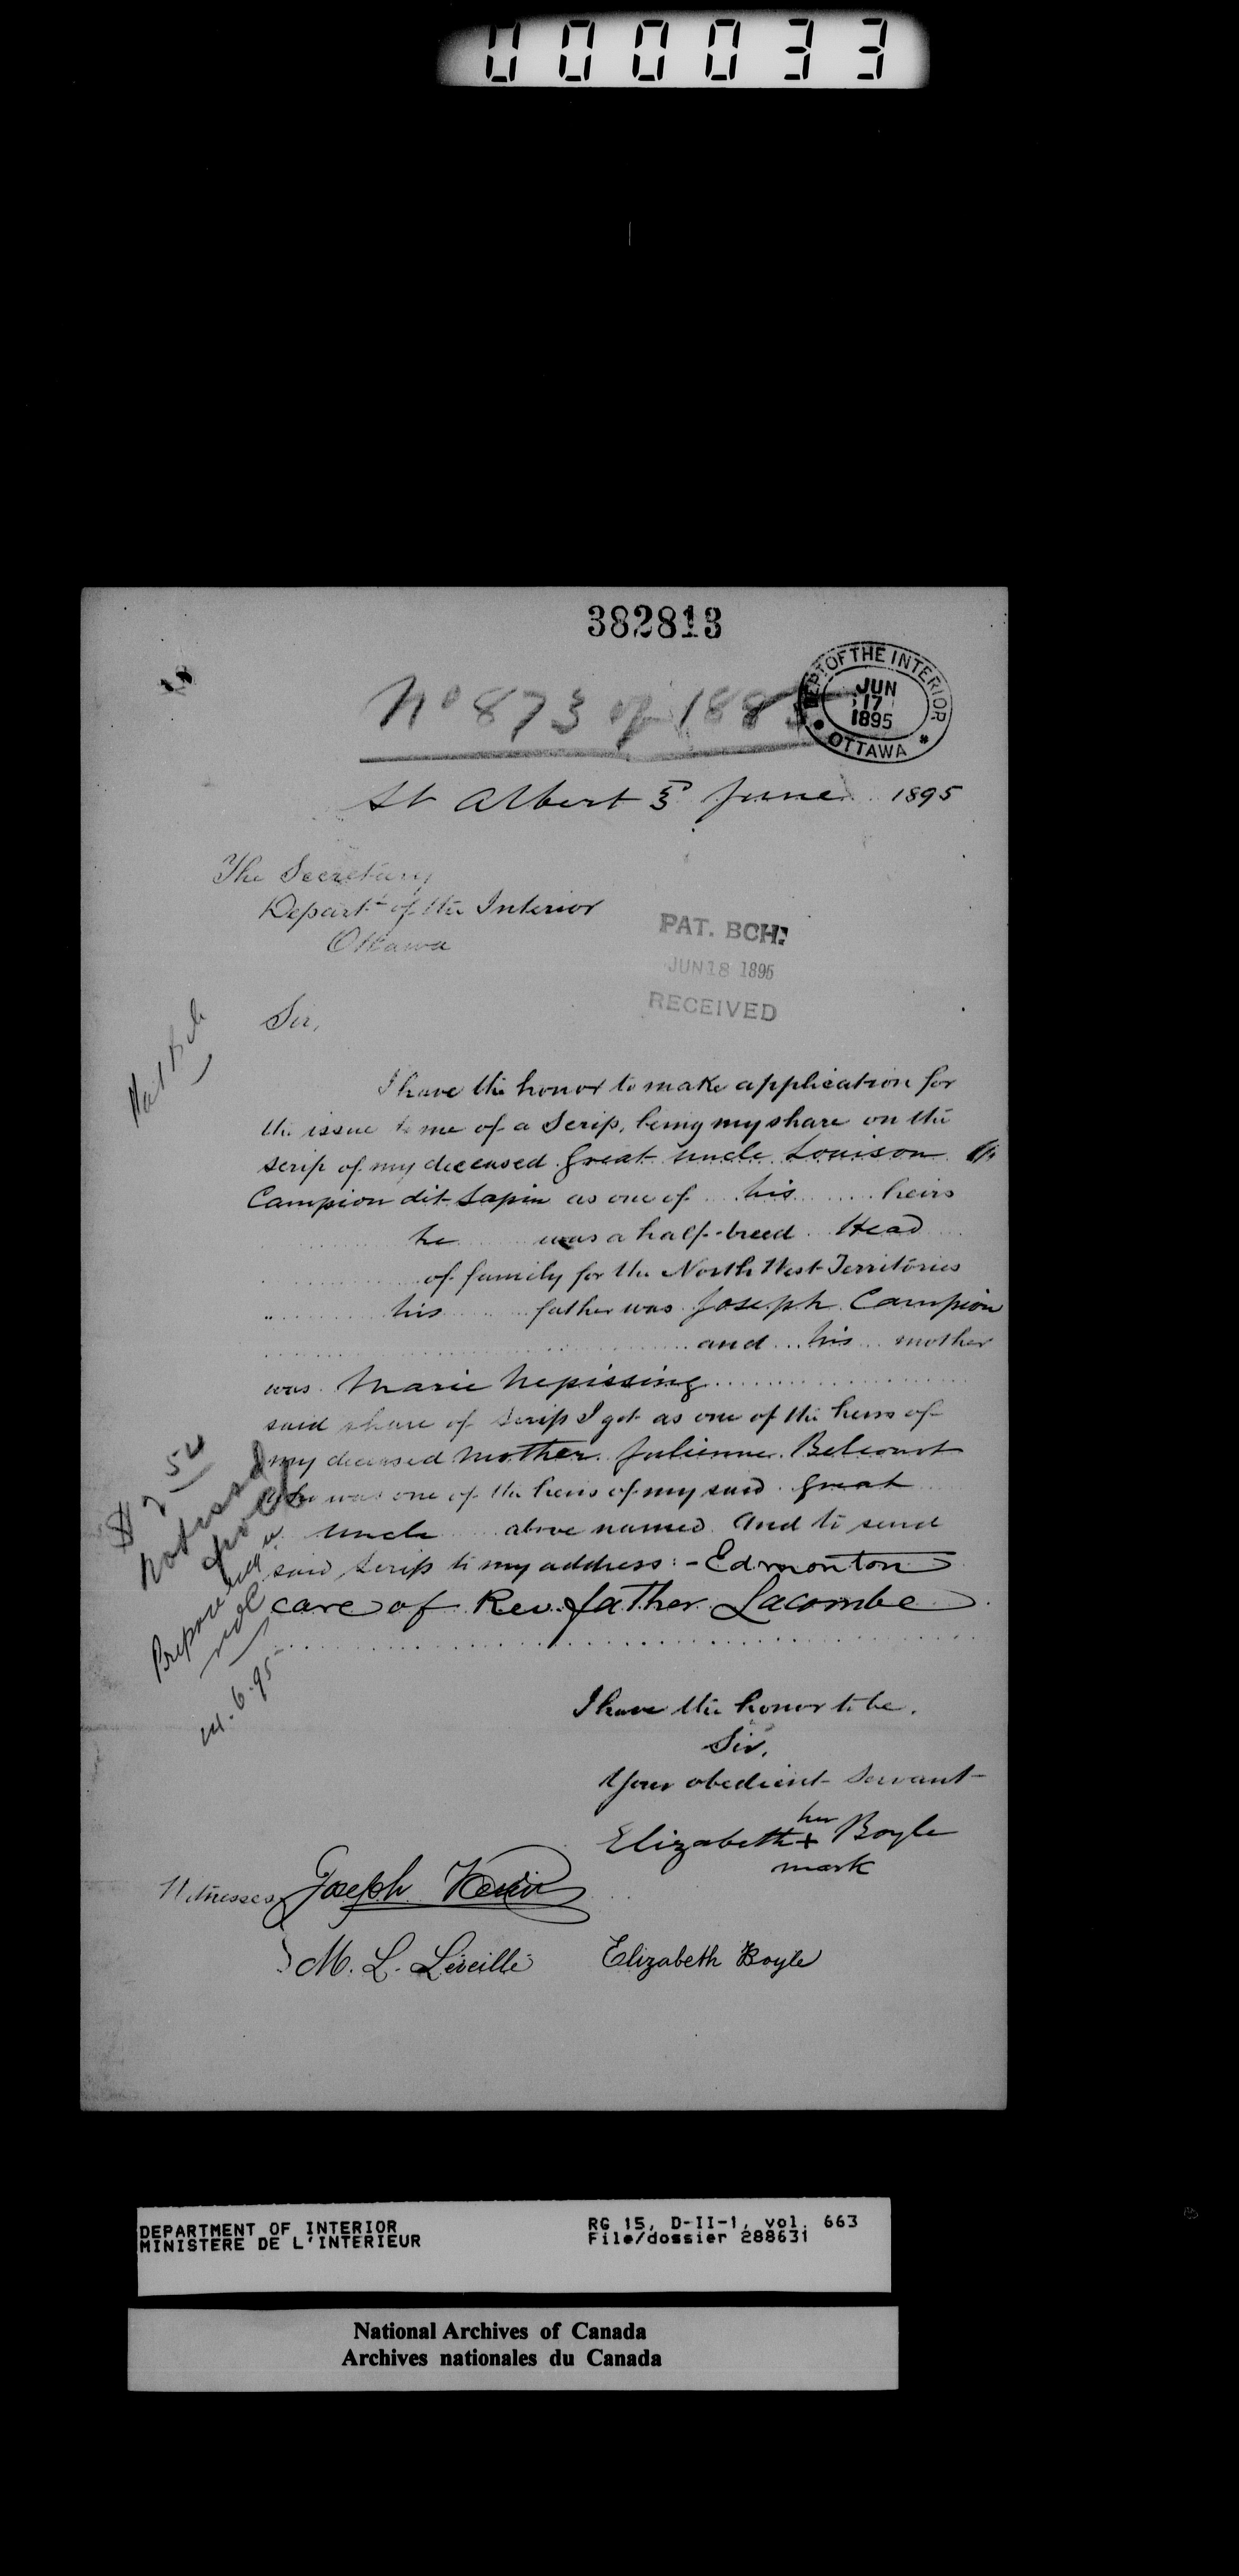 000033
382813
No 873 of 1885
DEPT OF THE INTERIOR
JUN
17
1895
OTTAWA
St Albert 5 June 1895
The Secretary
Depart^t of the Interior
Ottawa
PAT. BCH.
JUN 18 1895
RECEIVED
Sir,
I have the honor to make application for
the issue to me of a Scrip, being my share on the
scrip of my deceased great uncle Louison
Campion dit Lapin as one of his heirs
he was a half-breed Head
of family for the North West Territories
his father was Joseph Campion
and his mother
was Marie Nepissing
said share of scrip I got as one of the heirs of
my deceased Mother Julienne Belcourt
who was one of the heirs of my said great
uncle above named and to send
said scrip to my address:- Edmonton
care of Rev. father Lacombe
I have the honor to be,
Sir,
Your obedient servant
her
Elizabeth + Boyle
mark
Witnesses Joseph
M. L. Léveillé Elizabeth Boyle
DEPARTMENT OF INTERIOR
MINISTERE DE L'INTERIEUR
RG 15, D-II-1, vol. 663
File/dossier 288631
National Archives of Canada
Archives nationales du Canada